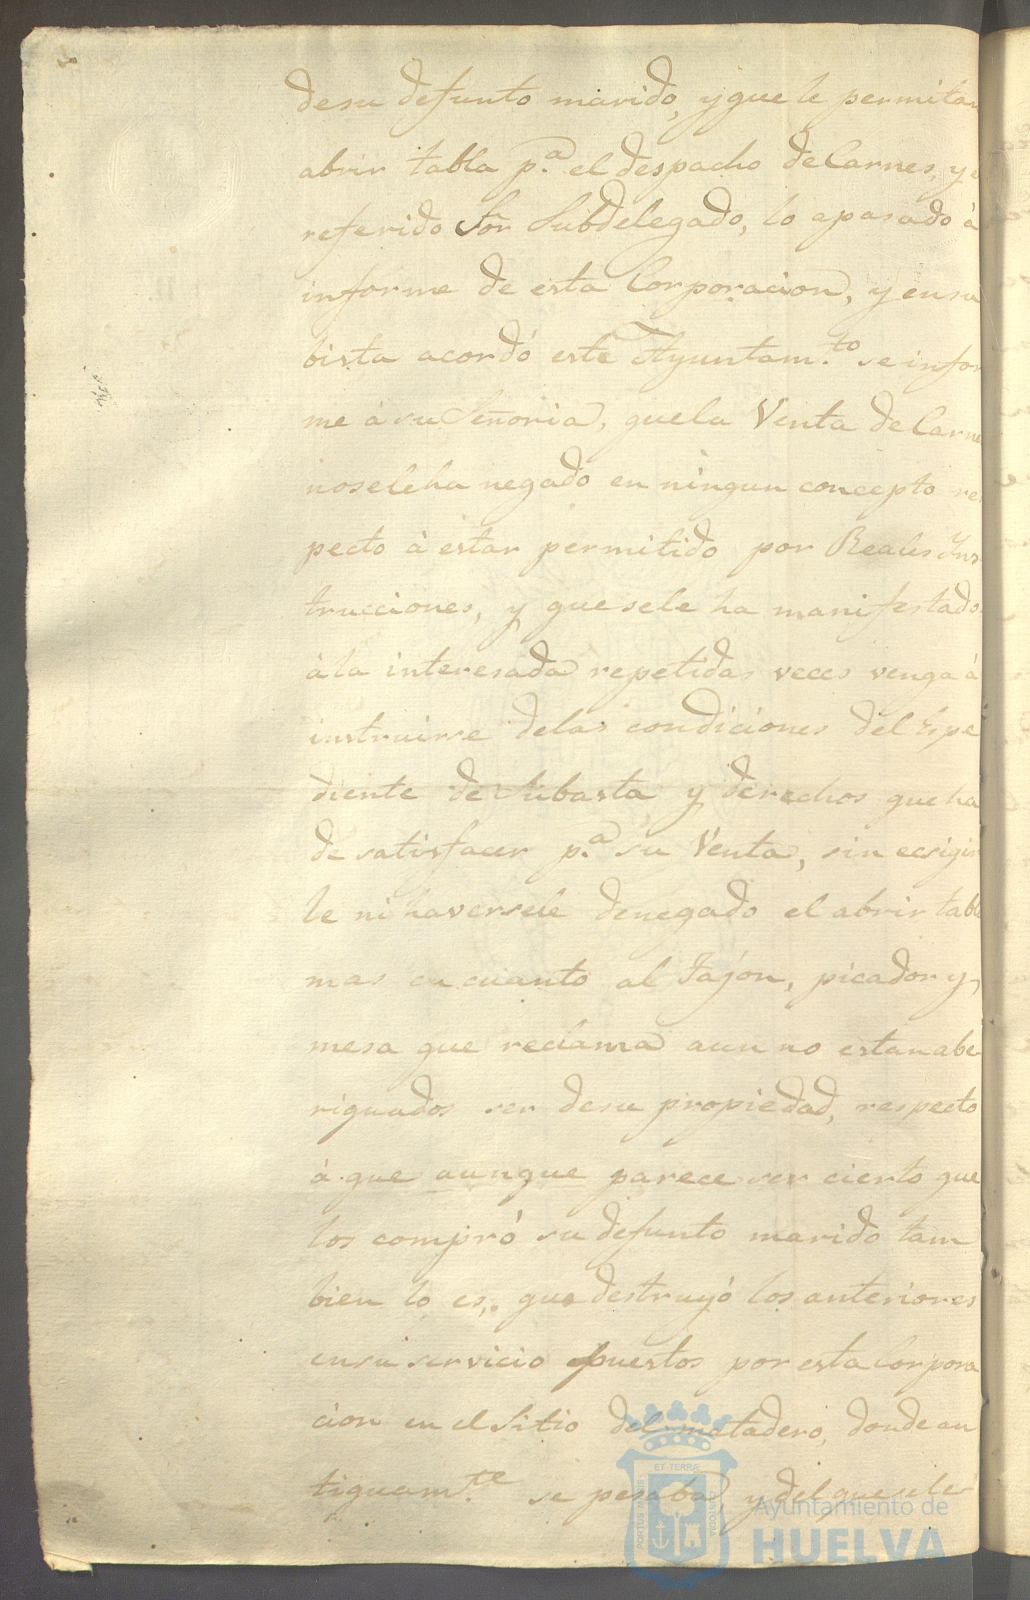 desu defunto marido, y que le permitan
abrir tabla p.ª el despacho de Carnes, y e
referido Sõr Subdelegado, lo apasado à
informe de esta Corporacion, y ensu
bista acordó este Ayuntam.to se infor
me á su Señoria, quela Venta de Carne
noseleha negado en ningun concepto res
pecto à estar permitido por Reales Yns
trucciones, y quesele ha manifestado
àla interesada repetidas veces venga à
instruirse delas condiciones del Espe
diente de Subasta, y derechos queha
de satisfacer p.ª su Venta, sin ecsigir
le ni haversele denegado el abrir tabla
mas en cuanto al Tajón, picador y
mesa que reclama aun no estan abe
riguados ser desu propiedad, respecto
à que aunque parece ser cierto que
los compró su defunto marido tam
bien lo es, que destruyó los anteriores
ensu servicio puestos por esta Corpora
cion en el Sitio del matadero, donde an
tiguam.te se pesaba, y del quesele
PORTUS MARIS
ET TERRÆ
CUSTODIA
Ayuntamiento de
HUELVA